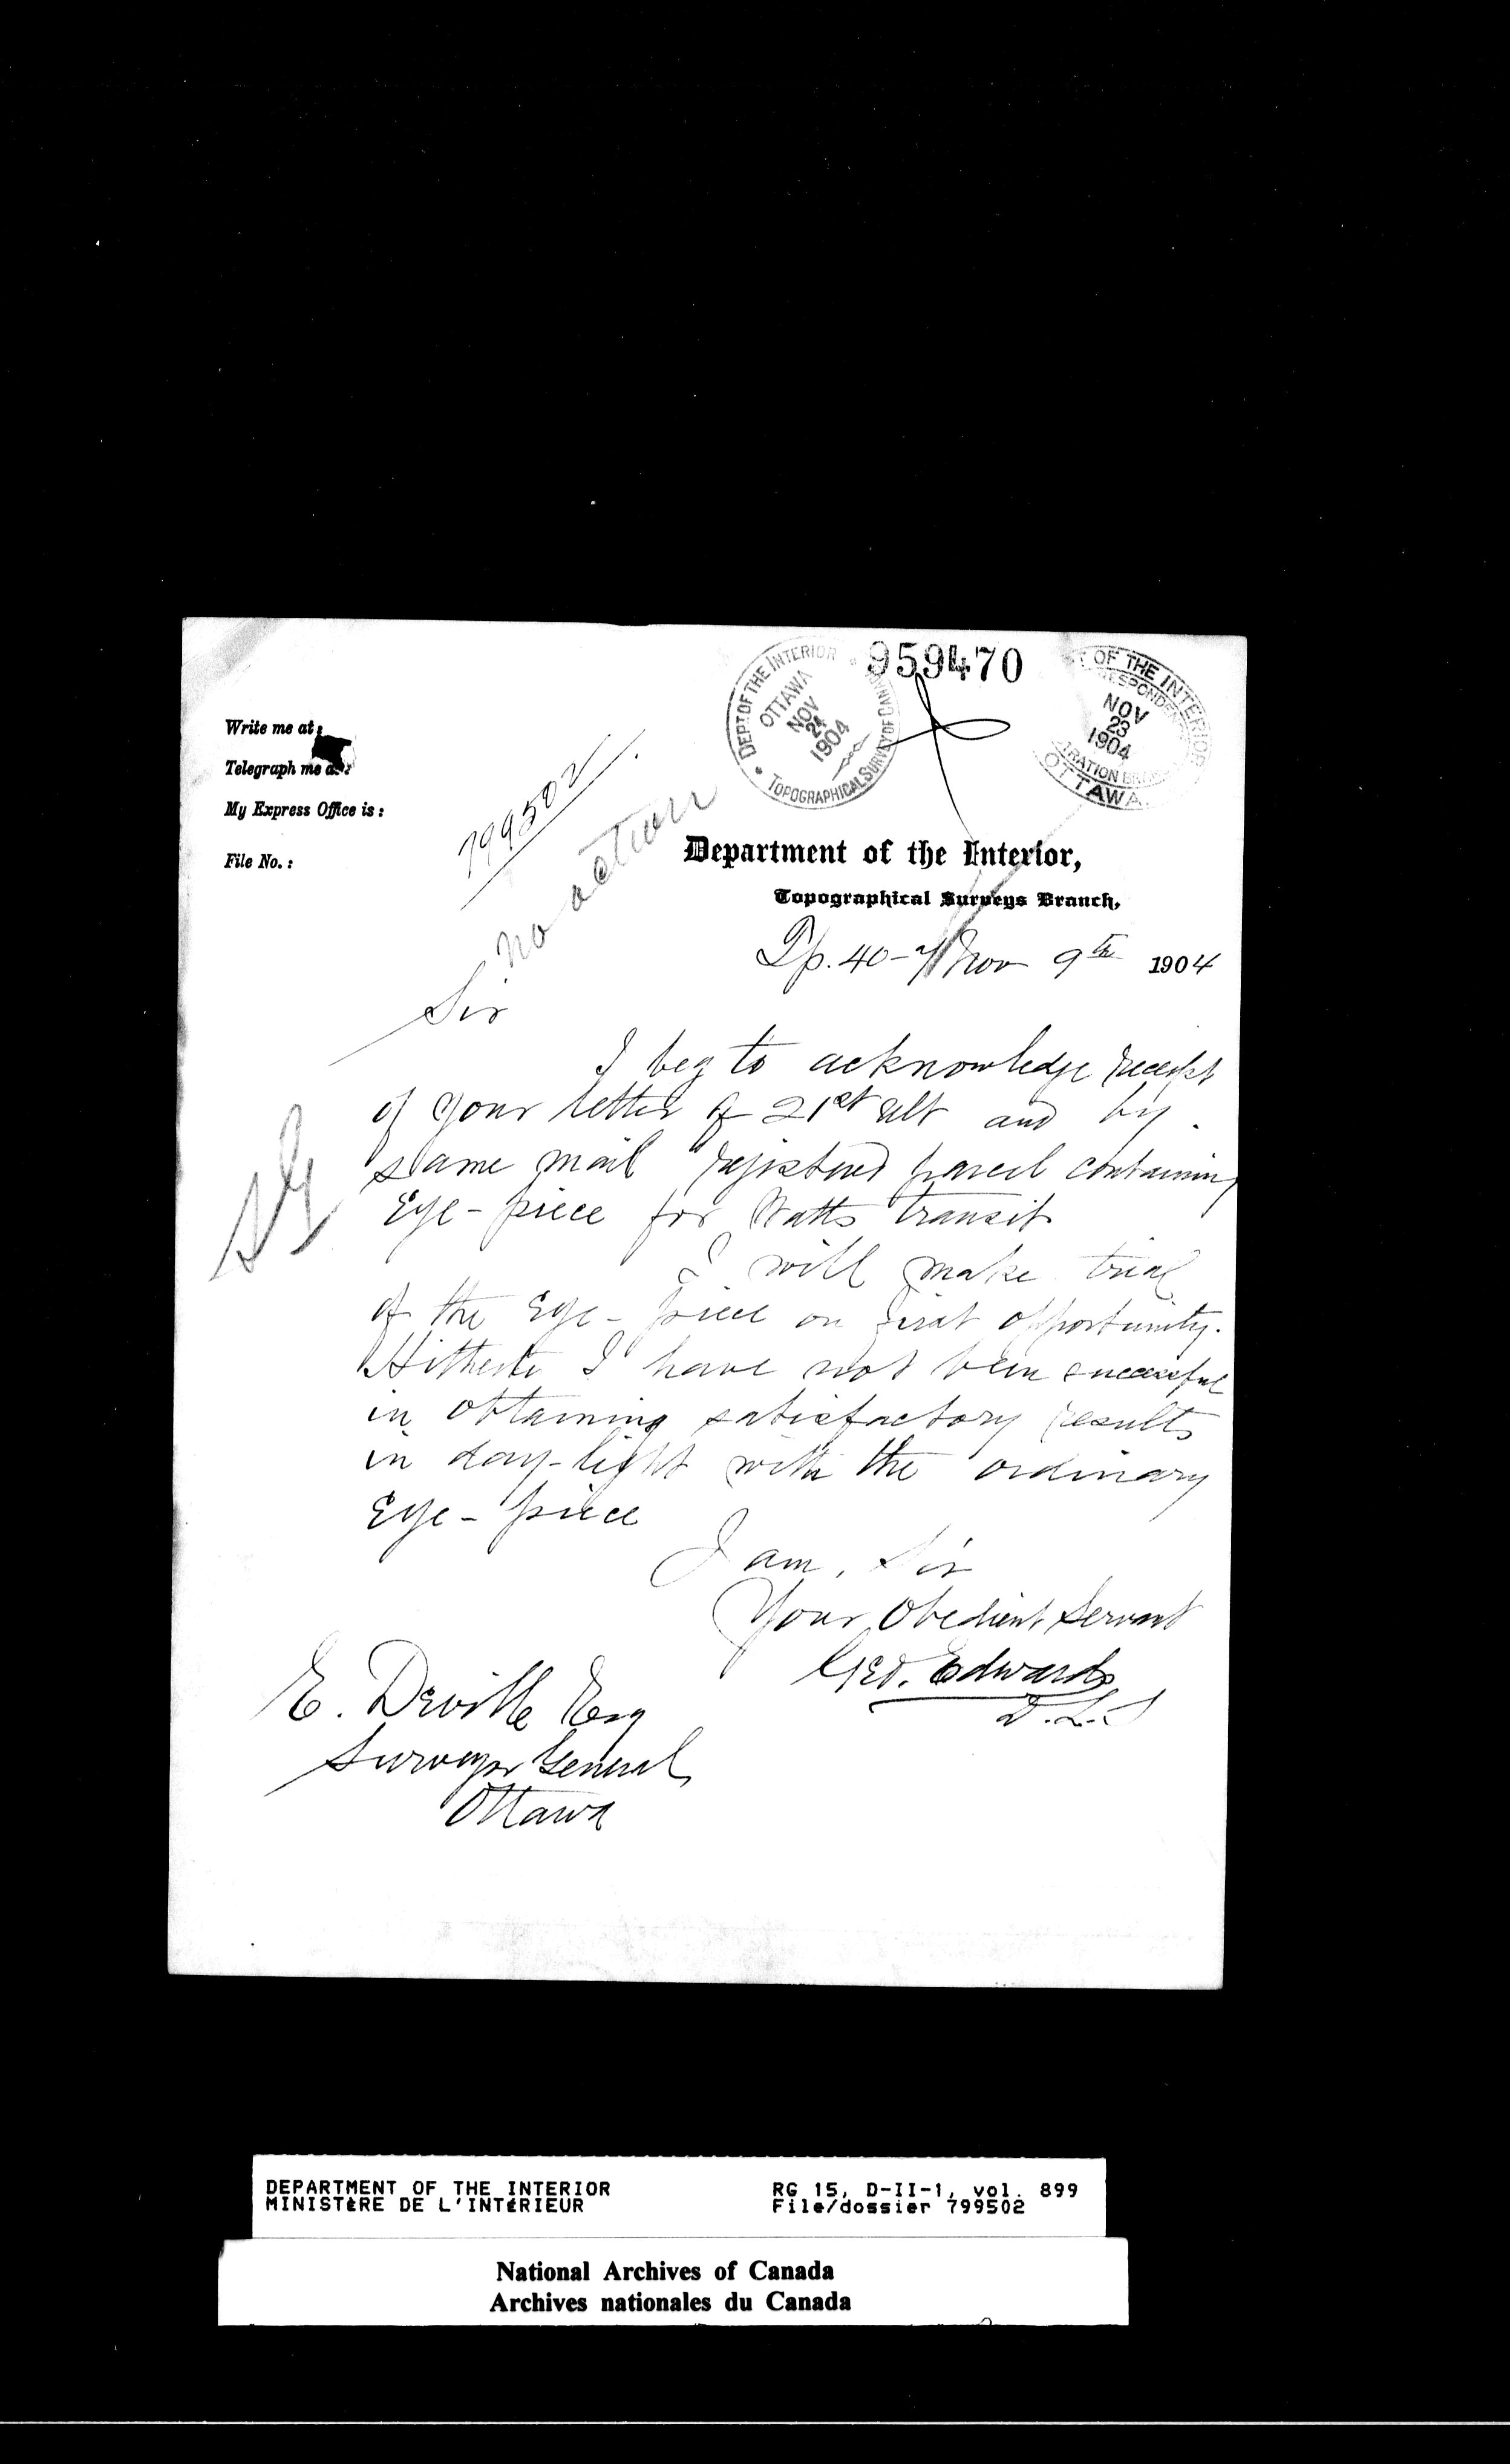 959470
DEPT OF THE INTERIOR
OTTAWA
NOV
24
1904
TOPOGRAPHICAL SURVEY OF CANADA
T OF THE INTERIOR
RESPONDE
NOV
23
1904
TRATION
OTTAWA
Write me at:
Telegraph me at:
My Express Office is:
File No.:
799502
no action
Department of the Interior,
Topographical Surveys Branch,
Tp. 40- Nov 9th 1904
Sir
I beg to acknowledge receipt
of your letter of 21st ult and by
same mail registered parcel containing
Eye-piece for Watts transit
I will make trial
of the Eye-piece on first opportunity.
Hitherto I have not been successful
in obtaining satisfactory results
in day-light with the ordinary
Eye-piece
I am, Sir
Your Obedient Servant
Geo. Edwards
D.L.S
SG
E. Deville Esq
Surveyor General
Ottawa
DEPARTMENT OF THE INTERIOR RG 15, D-II-1, vol. 899
MINISTÈRE DE L'INTÉRIEUR File/dossier 799502
National Archives of Canada
Archives nationales du Canada